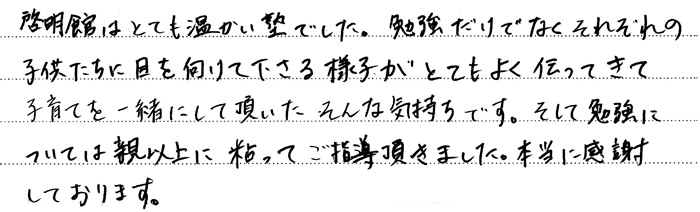 啓明館はとても温かい塾でした。勉強だけでなくそれぞれの
子供たちに目を向けて下さる様子がとてもよく伝ってきて
子育てを一緒にして頂いたそんな気持ちです。そして勉強に
ついては親以上に粘ってご指導頂きました。本当に感謝
しております。